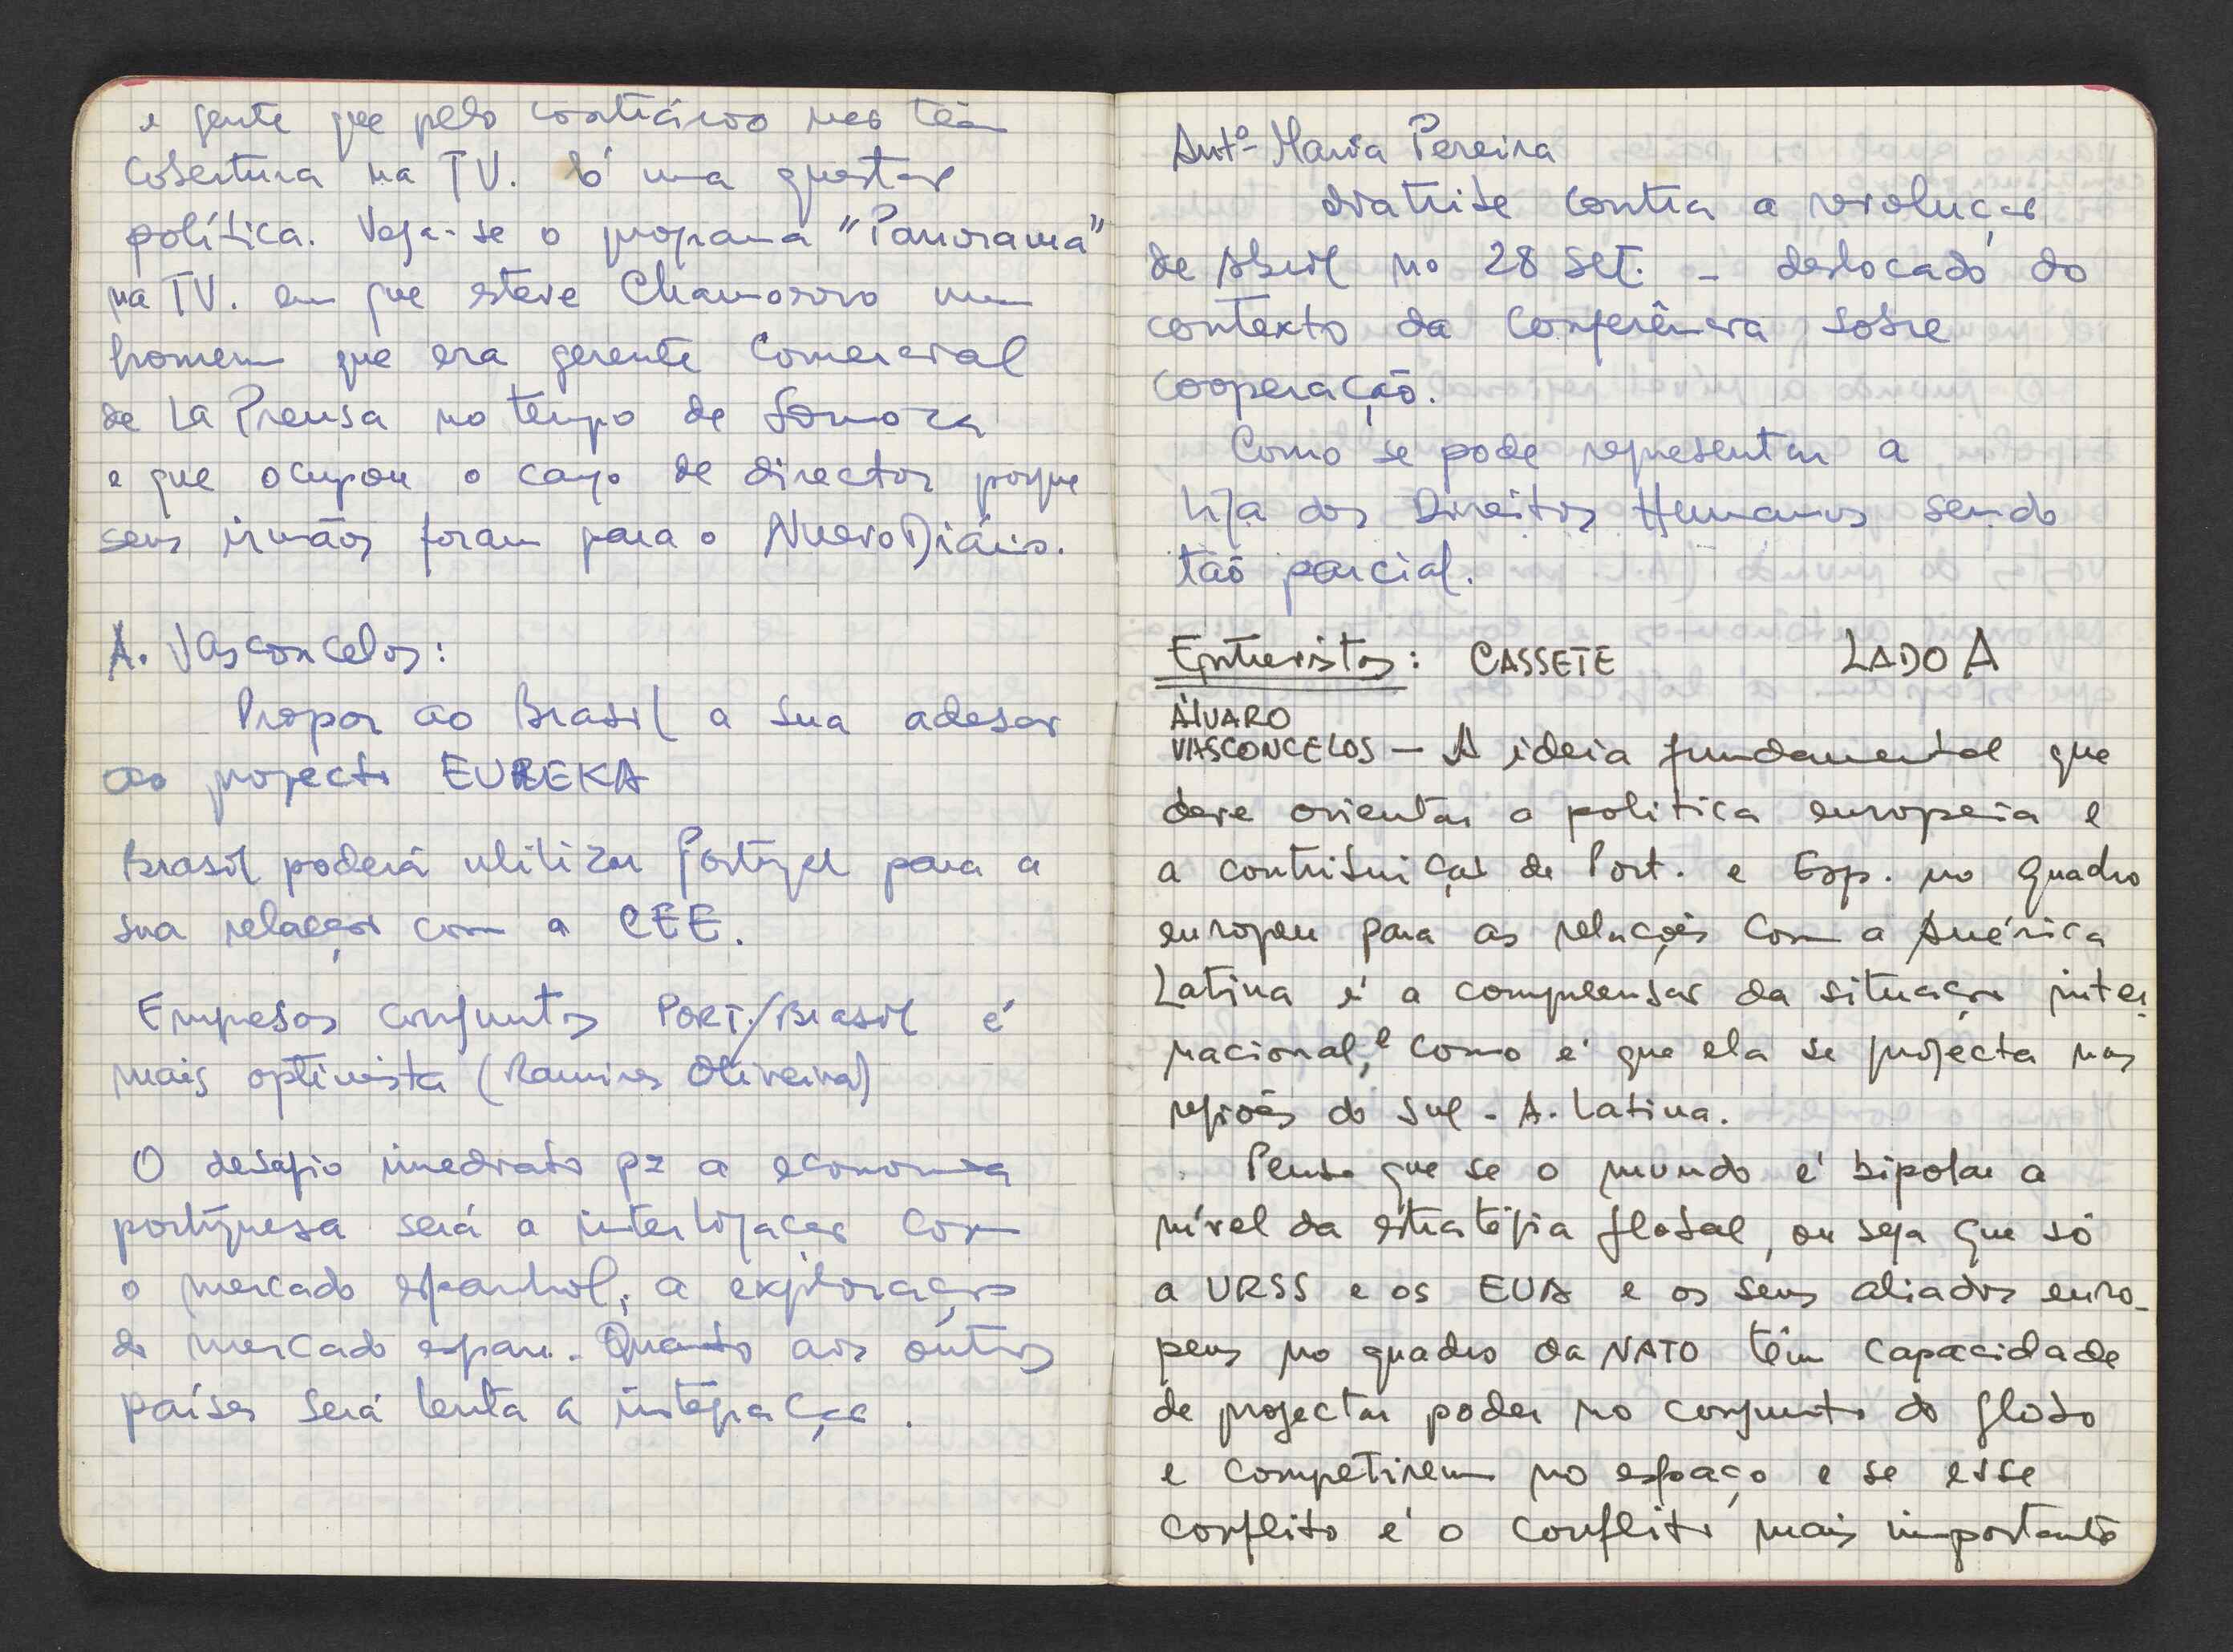 e gente que pelo contrário não têm
cobertura na TV. É uma questão
política. Veja-se o programa "Panorama"
na TV. em que esteve Chamorro um
homem que era gerente comercial
de La Prensa no tempo de Somoza
e que ocupou o cargo de director porque
seus irmãos foram para o Nuevo Diário.
A. Vasconcelos:
Propor ao Brasil a sua adesão
ao projecto EUREKA
Brasil poderá utilizar Portugal para a
sua relação com a CEE.
Empresas conjuntas PORT./Brasil é
mais optimista (Ramires Oliveira)
O desafio imediato pª a economia
portuguesa será a interligação com
o mercado espanhol, a exploração
do mercado espan. Quanto aos outros
países será lenta a integração.
Antº Maria Pereira
diatribe contra a revolução
de Abril no 28 Set. - deslocado do
contexto da Conferência sobre
cooperação.
Como se pode representar a
Liga dos Direitos Humanos sendo
tão parcial.
Entrevistas: CASSETE LADO A
ÁLVARO
VASCONCELOS - A ideia fundamental que
deve orientar a política europeia e
a contribuição de Port. e Esp. no quadro
europeu para as relações com a América
Latina é a compreensão da situação inter-
nacional, e como é que ela se projecta nas
regiões do Sul - A. Latina.
Penso que se o mundo é bipolar a
nível da estratégia global, ou seja que só
a URSS e os EUA e os seus aliados euro-
peus no quadro da NATO têm capacidade
de projectar poder no conjunto do globo
e competirem no espaço e se esse
conflito é o conflito mais importante